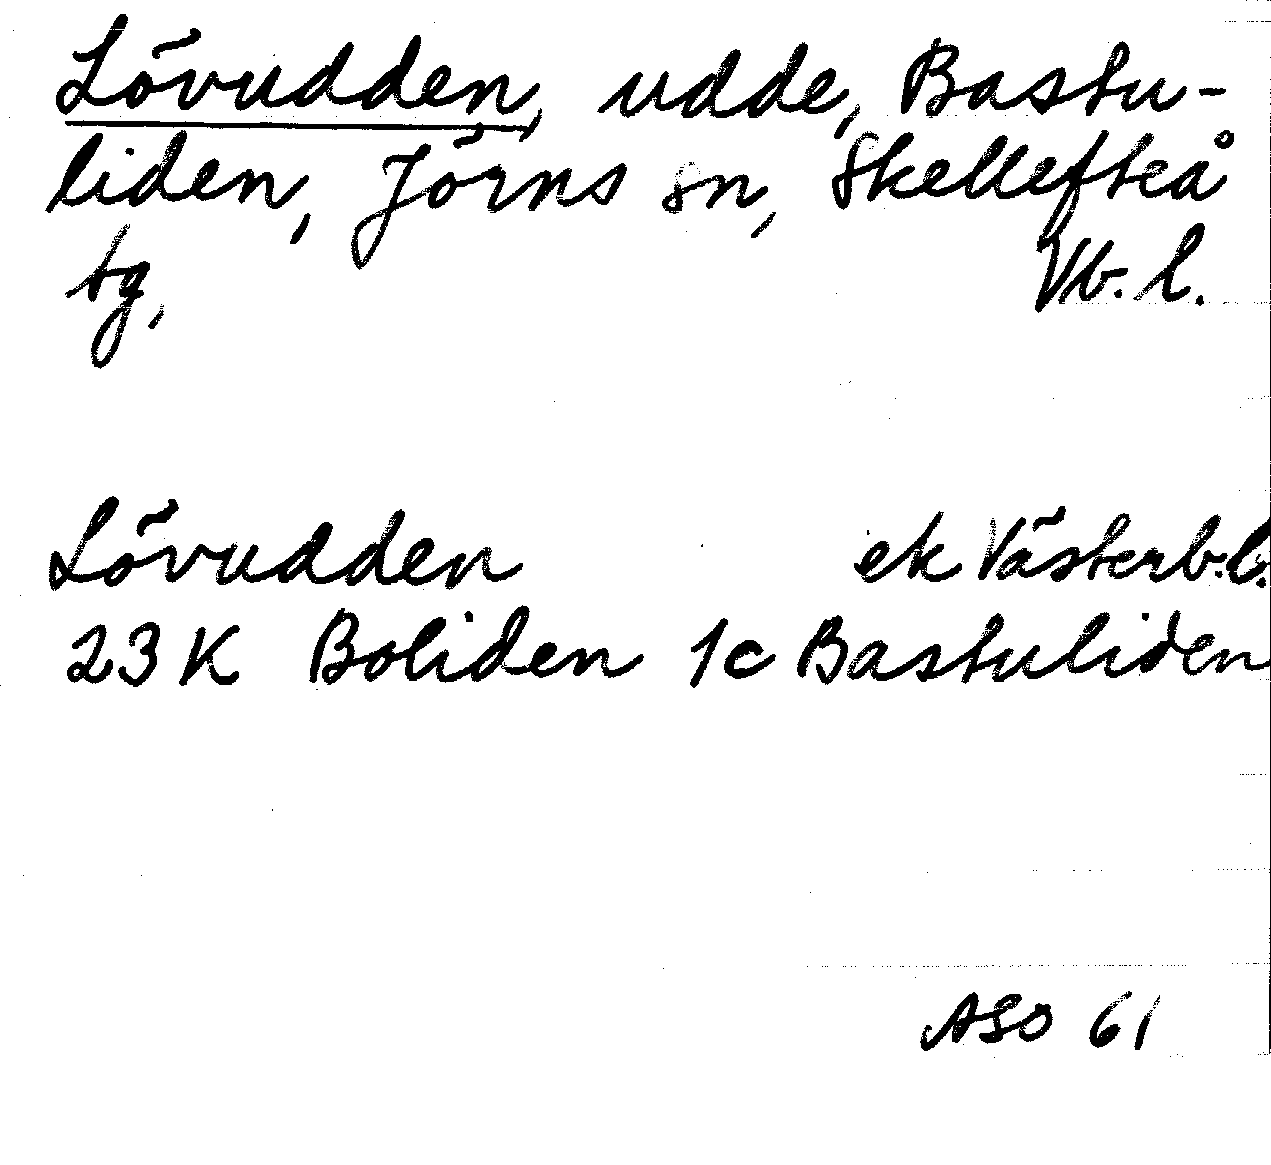 Lövudden, udde, Bastu-
liden, Jörns sn, Skellefteå
tg, Vb. l.
Lövudden ek Västerb.l.
23 K Boliden 1c Bastuliden
ASO 61